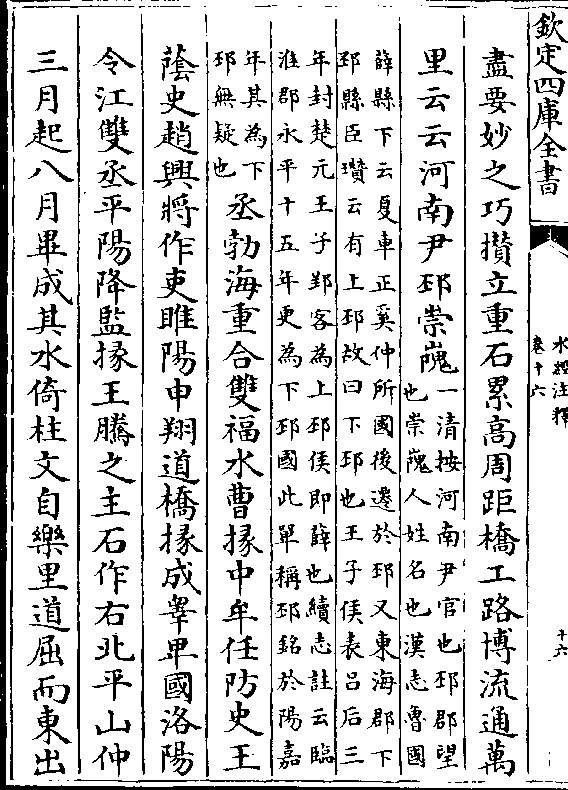 欽定四庫全書
水經注釋
卷十六
十六
盡要妙之巧攅立重石累高周距橋工路博流通萬
里云云河南尹邳崇㠕
一清按河南尹官也邳郡望
也崇㠕人姓名也漢志魯國
薛縣下云夏車正奚仲所國後遷於邳又東海郡下
邳縣臣瓚云有上邳故曰下邳也王子侯表呂后三
年封楚元王子郢客為上邳侯即薛也續志註云臨
淮郡永平十五年更為下邳國此單稱邳銘於陽嘉
年其為下
邳無疑也
丞勃海重合雙福水曹掾中牟任防史王
蔭史趙興將作吏睢陽申翔道橋掾成睾卑國洛陽
令江雙丞平陽降監掾王騰之主石作右北平山仲
三月起八月畢成其水倚柱文自樂里道屈而東出